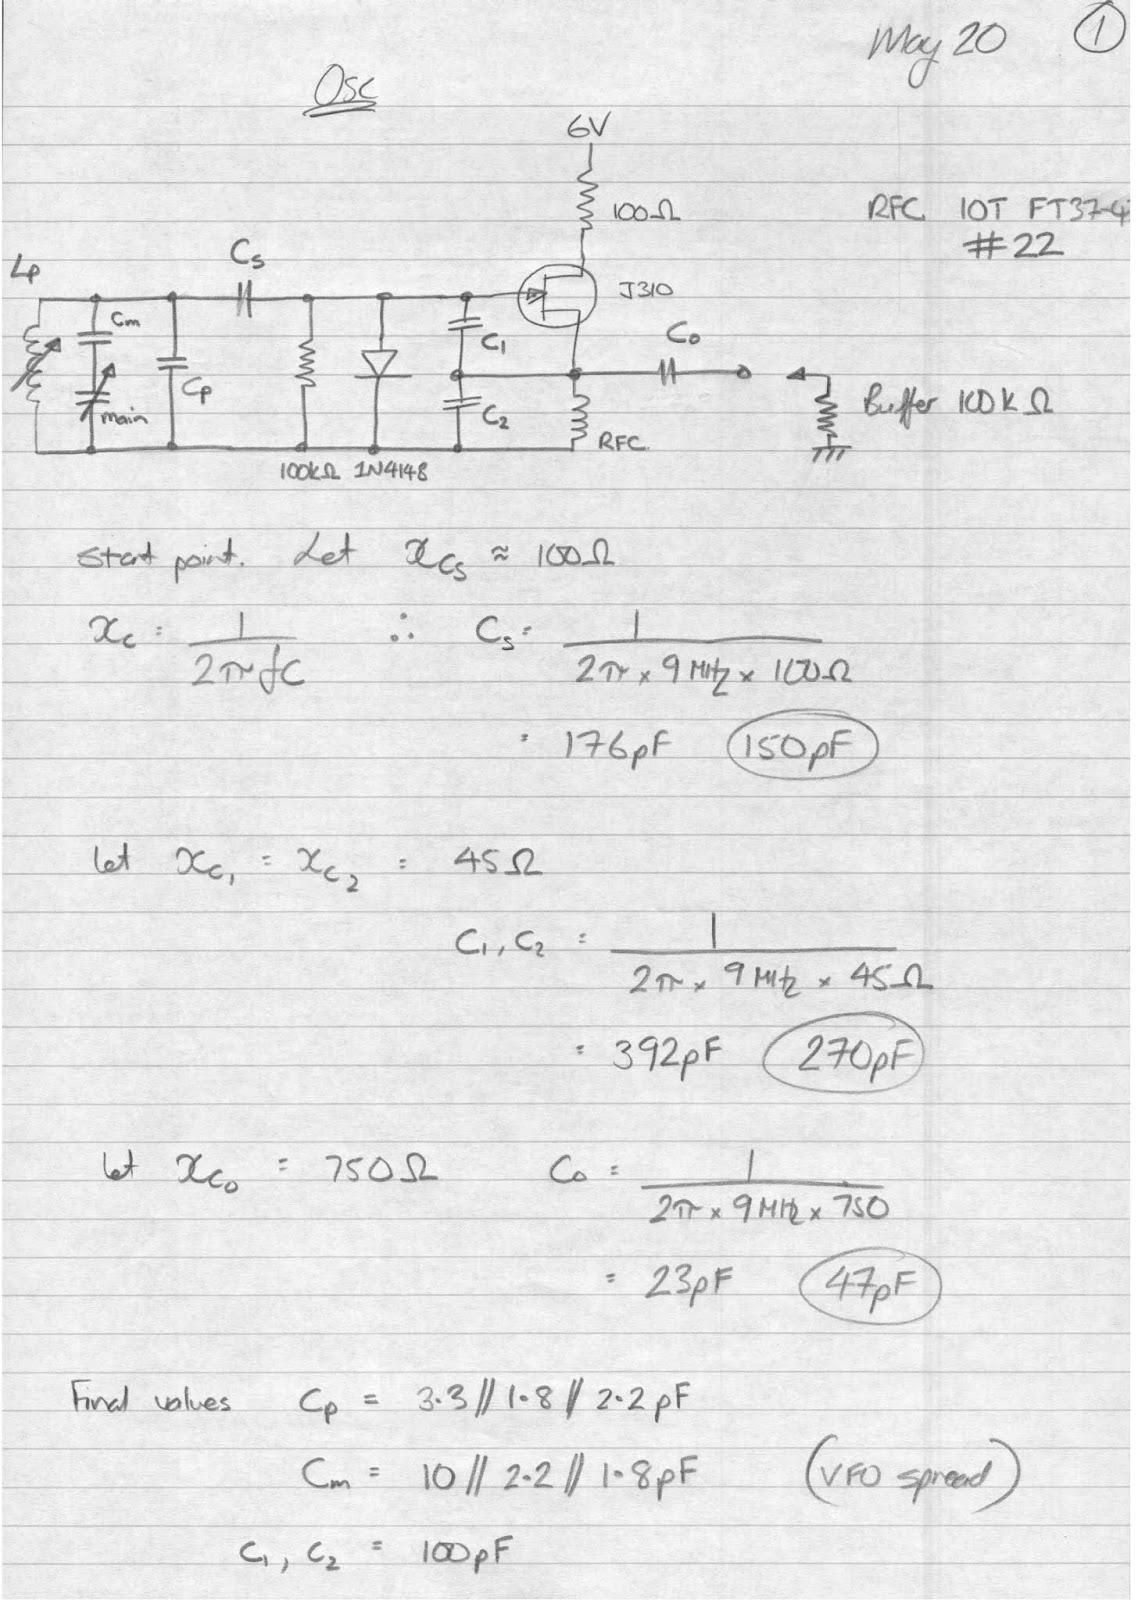 May 20 ①
Osc
6V
100Ω
RFC 10T FT37-4
#22
Lp
Cs
J310
Cm
C1
Co
Cp
main
C2
Buffer 100kΩ
RFC
100kΩ 1N4148
start point. Let xCs ≈ 100Ω
xc = 1 / 2πfC ∴ Cs = 1 / 2π × 9MHz × 100Ω
= 176pF 150pF
let xC1 = xC2 = 45Ω
C1, C2 = 1 / 2π × 9MHz × 45Ω
= 392pF 270pF
let xCo = 750Ω Co = 1 / 2π × 9MHz × 750
= 23pF 47pF
Final values Cp = 3.3 // 1.8 // 2.2 pF
Cm = 10 // 2.2 // 1.8pF (VFO spread)
C1, C2 = 100pF